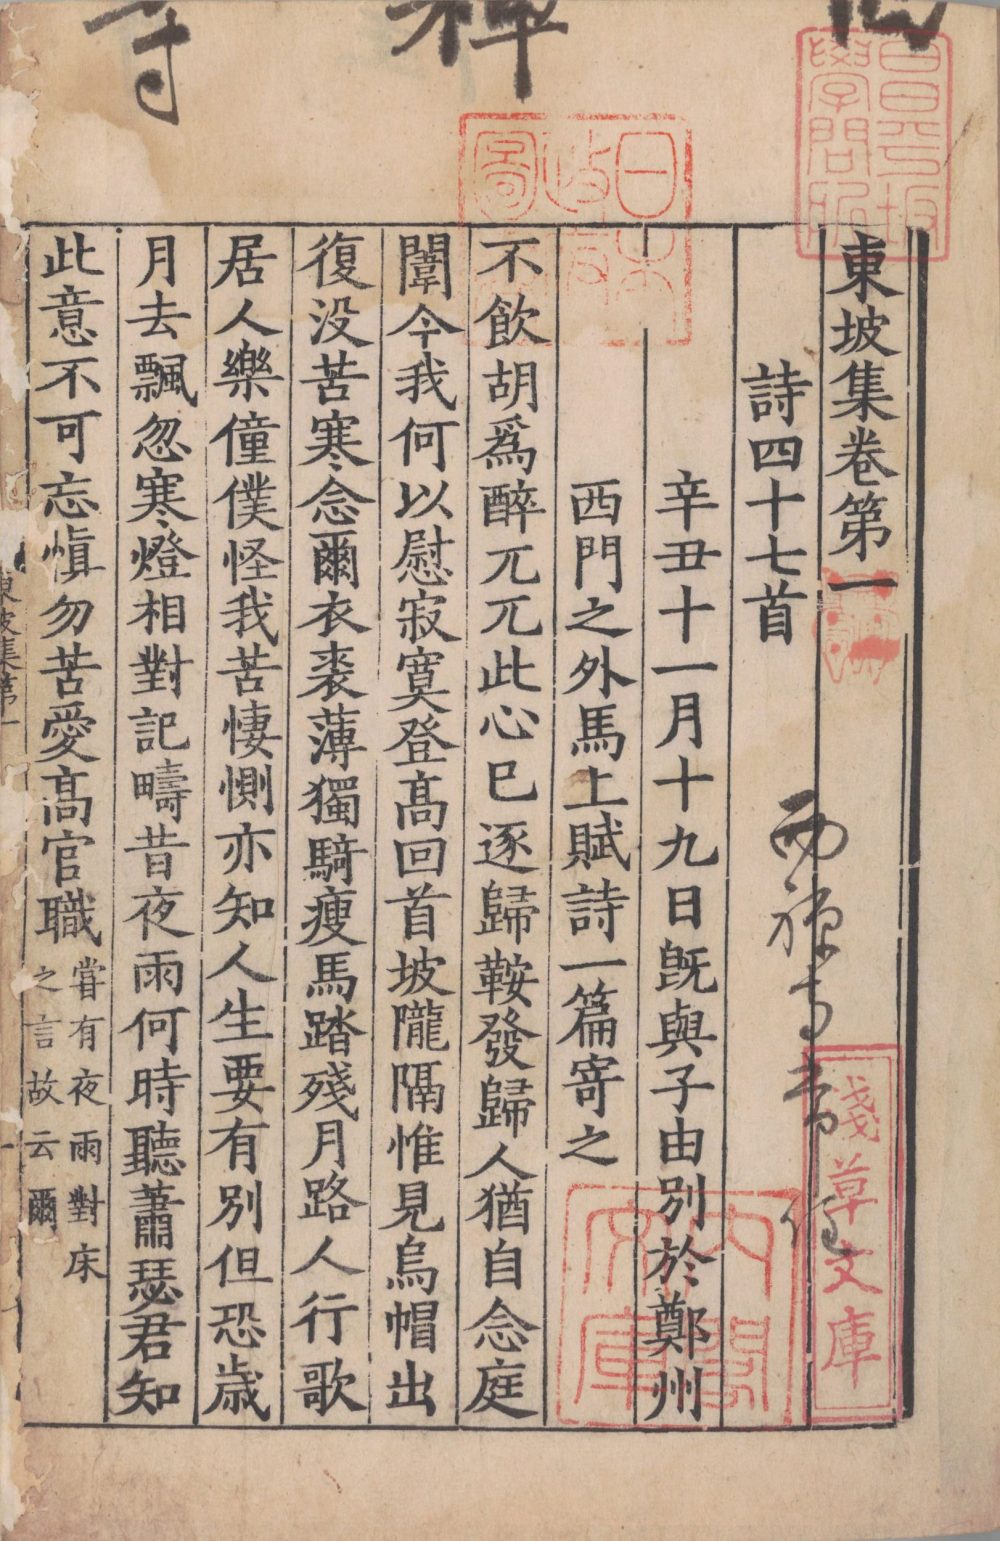 西禪寺
昌平坂
學問所
日本
政府
圖書
東坡集卷第一
西禪寺常住
淺草文庫
詩四十七首
辛丑十一月十九日旣與子由別於鄭州
西門之外馬上賦詩一篇寄之
內閣
文庫
不飲胡爲醉兀兀此心已逐歸鞍發歸人猶自念庭
闈今我何以慰寂寞登髙回首坡隴隔惟見烏帽出
復没苦寒念爾衣裘薄獨騎瘦馬踏殘月路人行歌
居人樂僮僕怪我苦悽惻亦知人生要有別但恐歲
月去飄忽寒燈相對記疇昔夜雨何時聽蕭瑟君知
此意不可忘愼勿苦愛髙官職
甞有夜雨對床
之言故云爾
東坡集第一
一